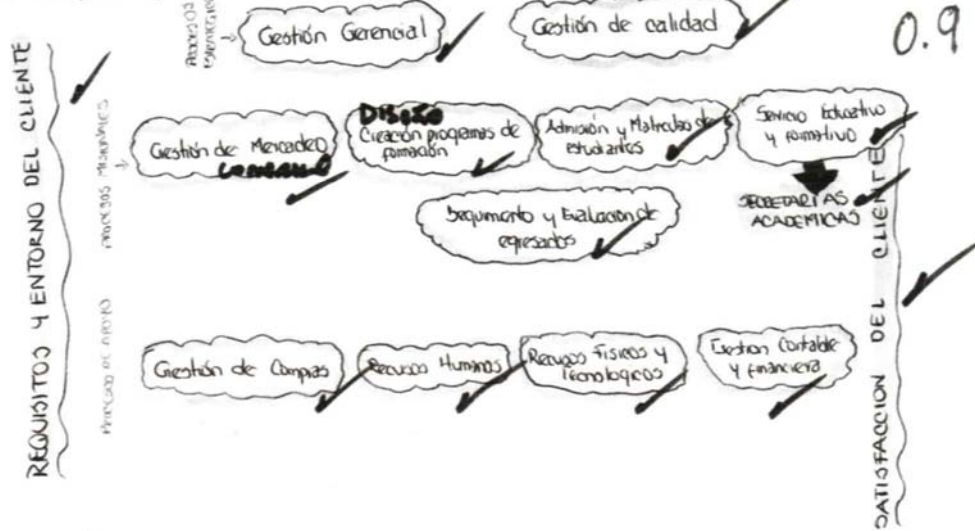 REQUISITOS Y ENTORNO DEL CLIENTE
PROCESOS
Gestión Gerencial
Gestión de calidad
0.9
PROCESOS MISIONALES
Gestión de Mercadeo
DISEÑO
Creación programas de
formación
Admisión y Matriculas de
estudiantes
Servicio Educativo
y formativo
SECRETARIAS
ACADEMICAS
Seguimiento y Evaluación de
egresados
PROCESO DE APOYO
Gestión de Compras
Recursos Humanos
Recursos Fisicos y
Tecnologicos
Gestion Contable
y financiera
SATISFACCION DEL CLIENTE